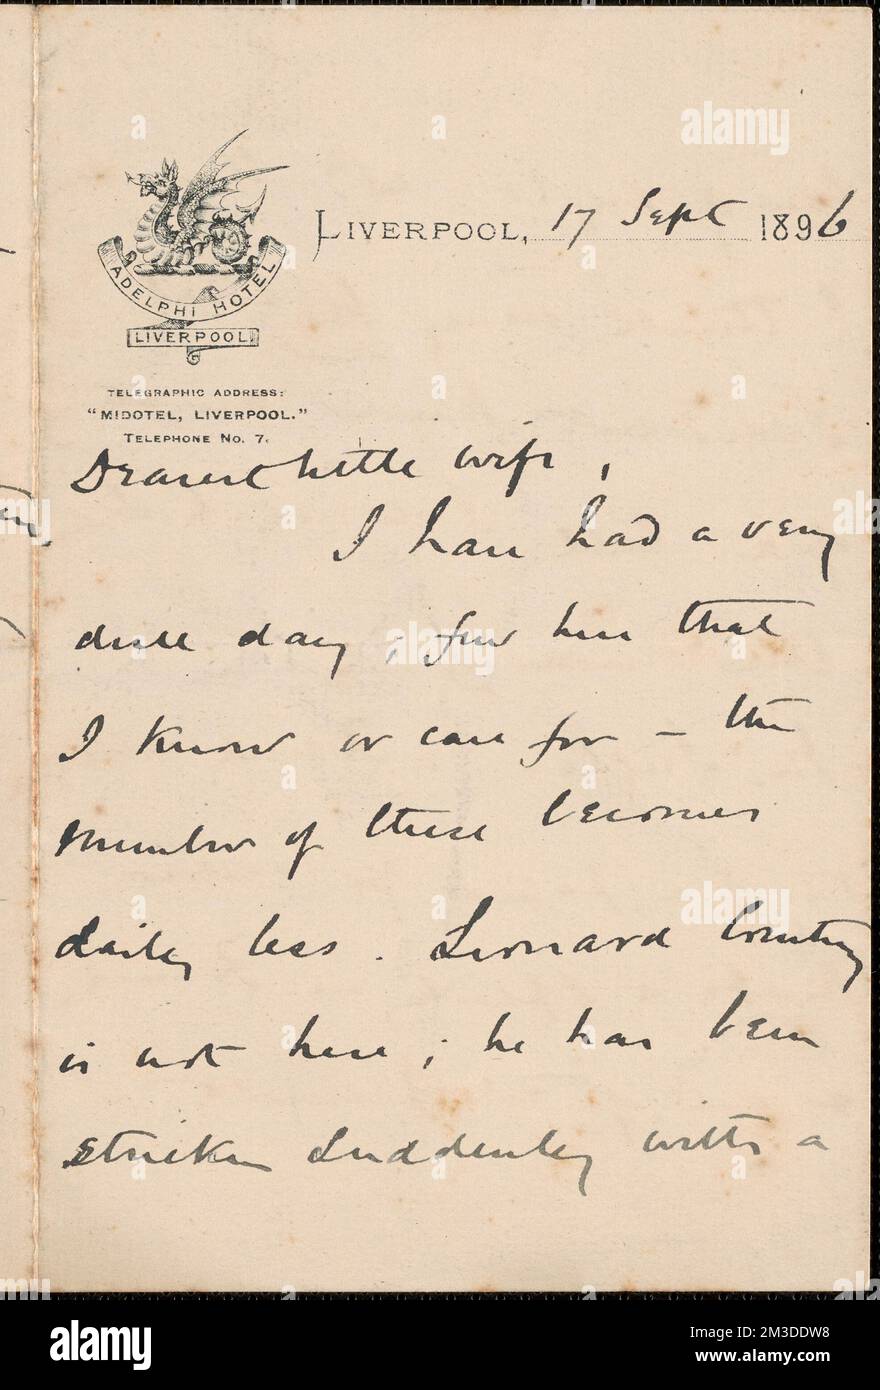 ADELPHI HOTEL
LIVERPOOL
LIVERPOOL, 17 Sept 1896
TELEGRAPHIC ADDRESS:
"MIDOTEL, LIVERPOOL."
TELEPHONE No. 7.
Dearest little wife,
I have had a very
dull day; few here that
I know or care for – the
number of these becomes
daily less. Leonard Courtney
is not here; he has been
stricken suddenly with a
alamy
Image ID: 2M3DDW8
www.alamy.com